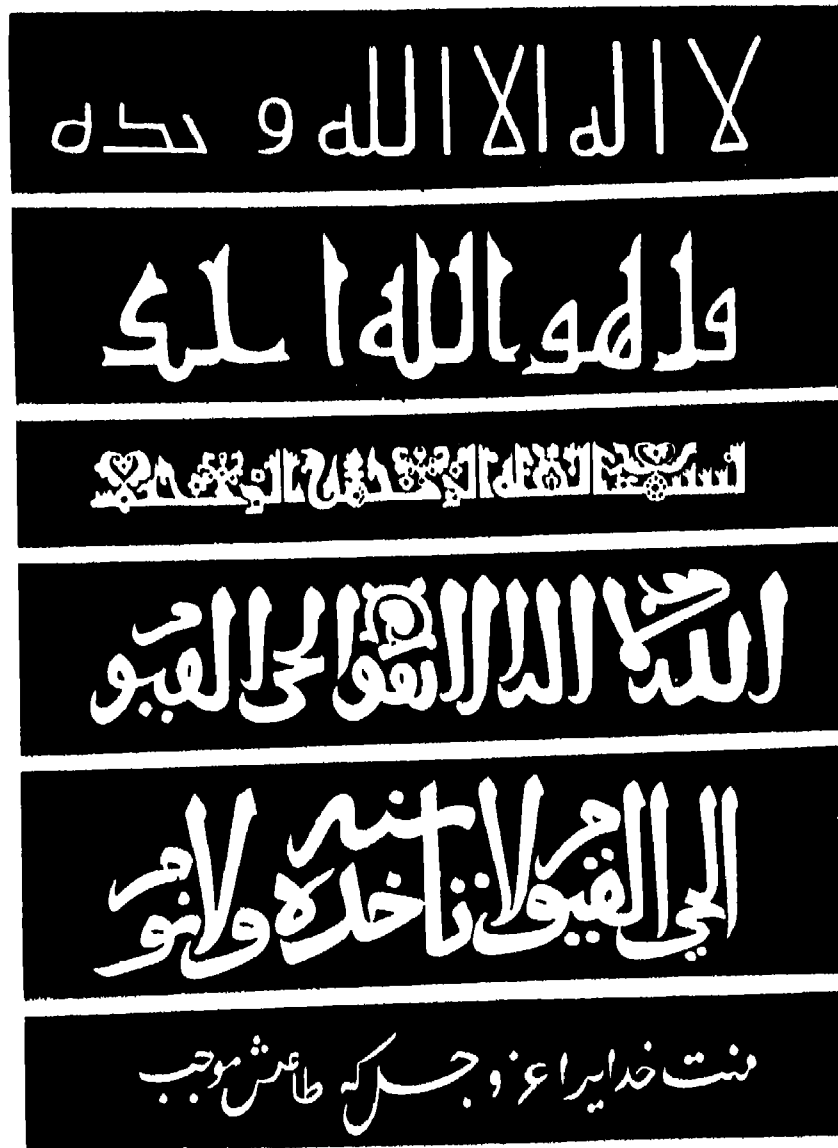 لا اله الا الله وحده
قل هو الله احد
بسم الله الرحمن الرحيم
الله لا اله الا هو الحي القيوم
الحي القيوم لا تاخذه سنه ولا نوم
منت خدایرا عز و جل که طاعتش موجب